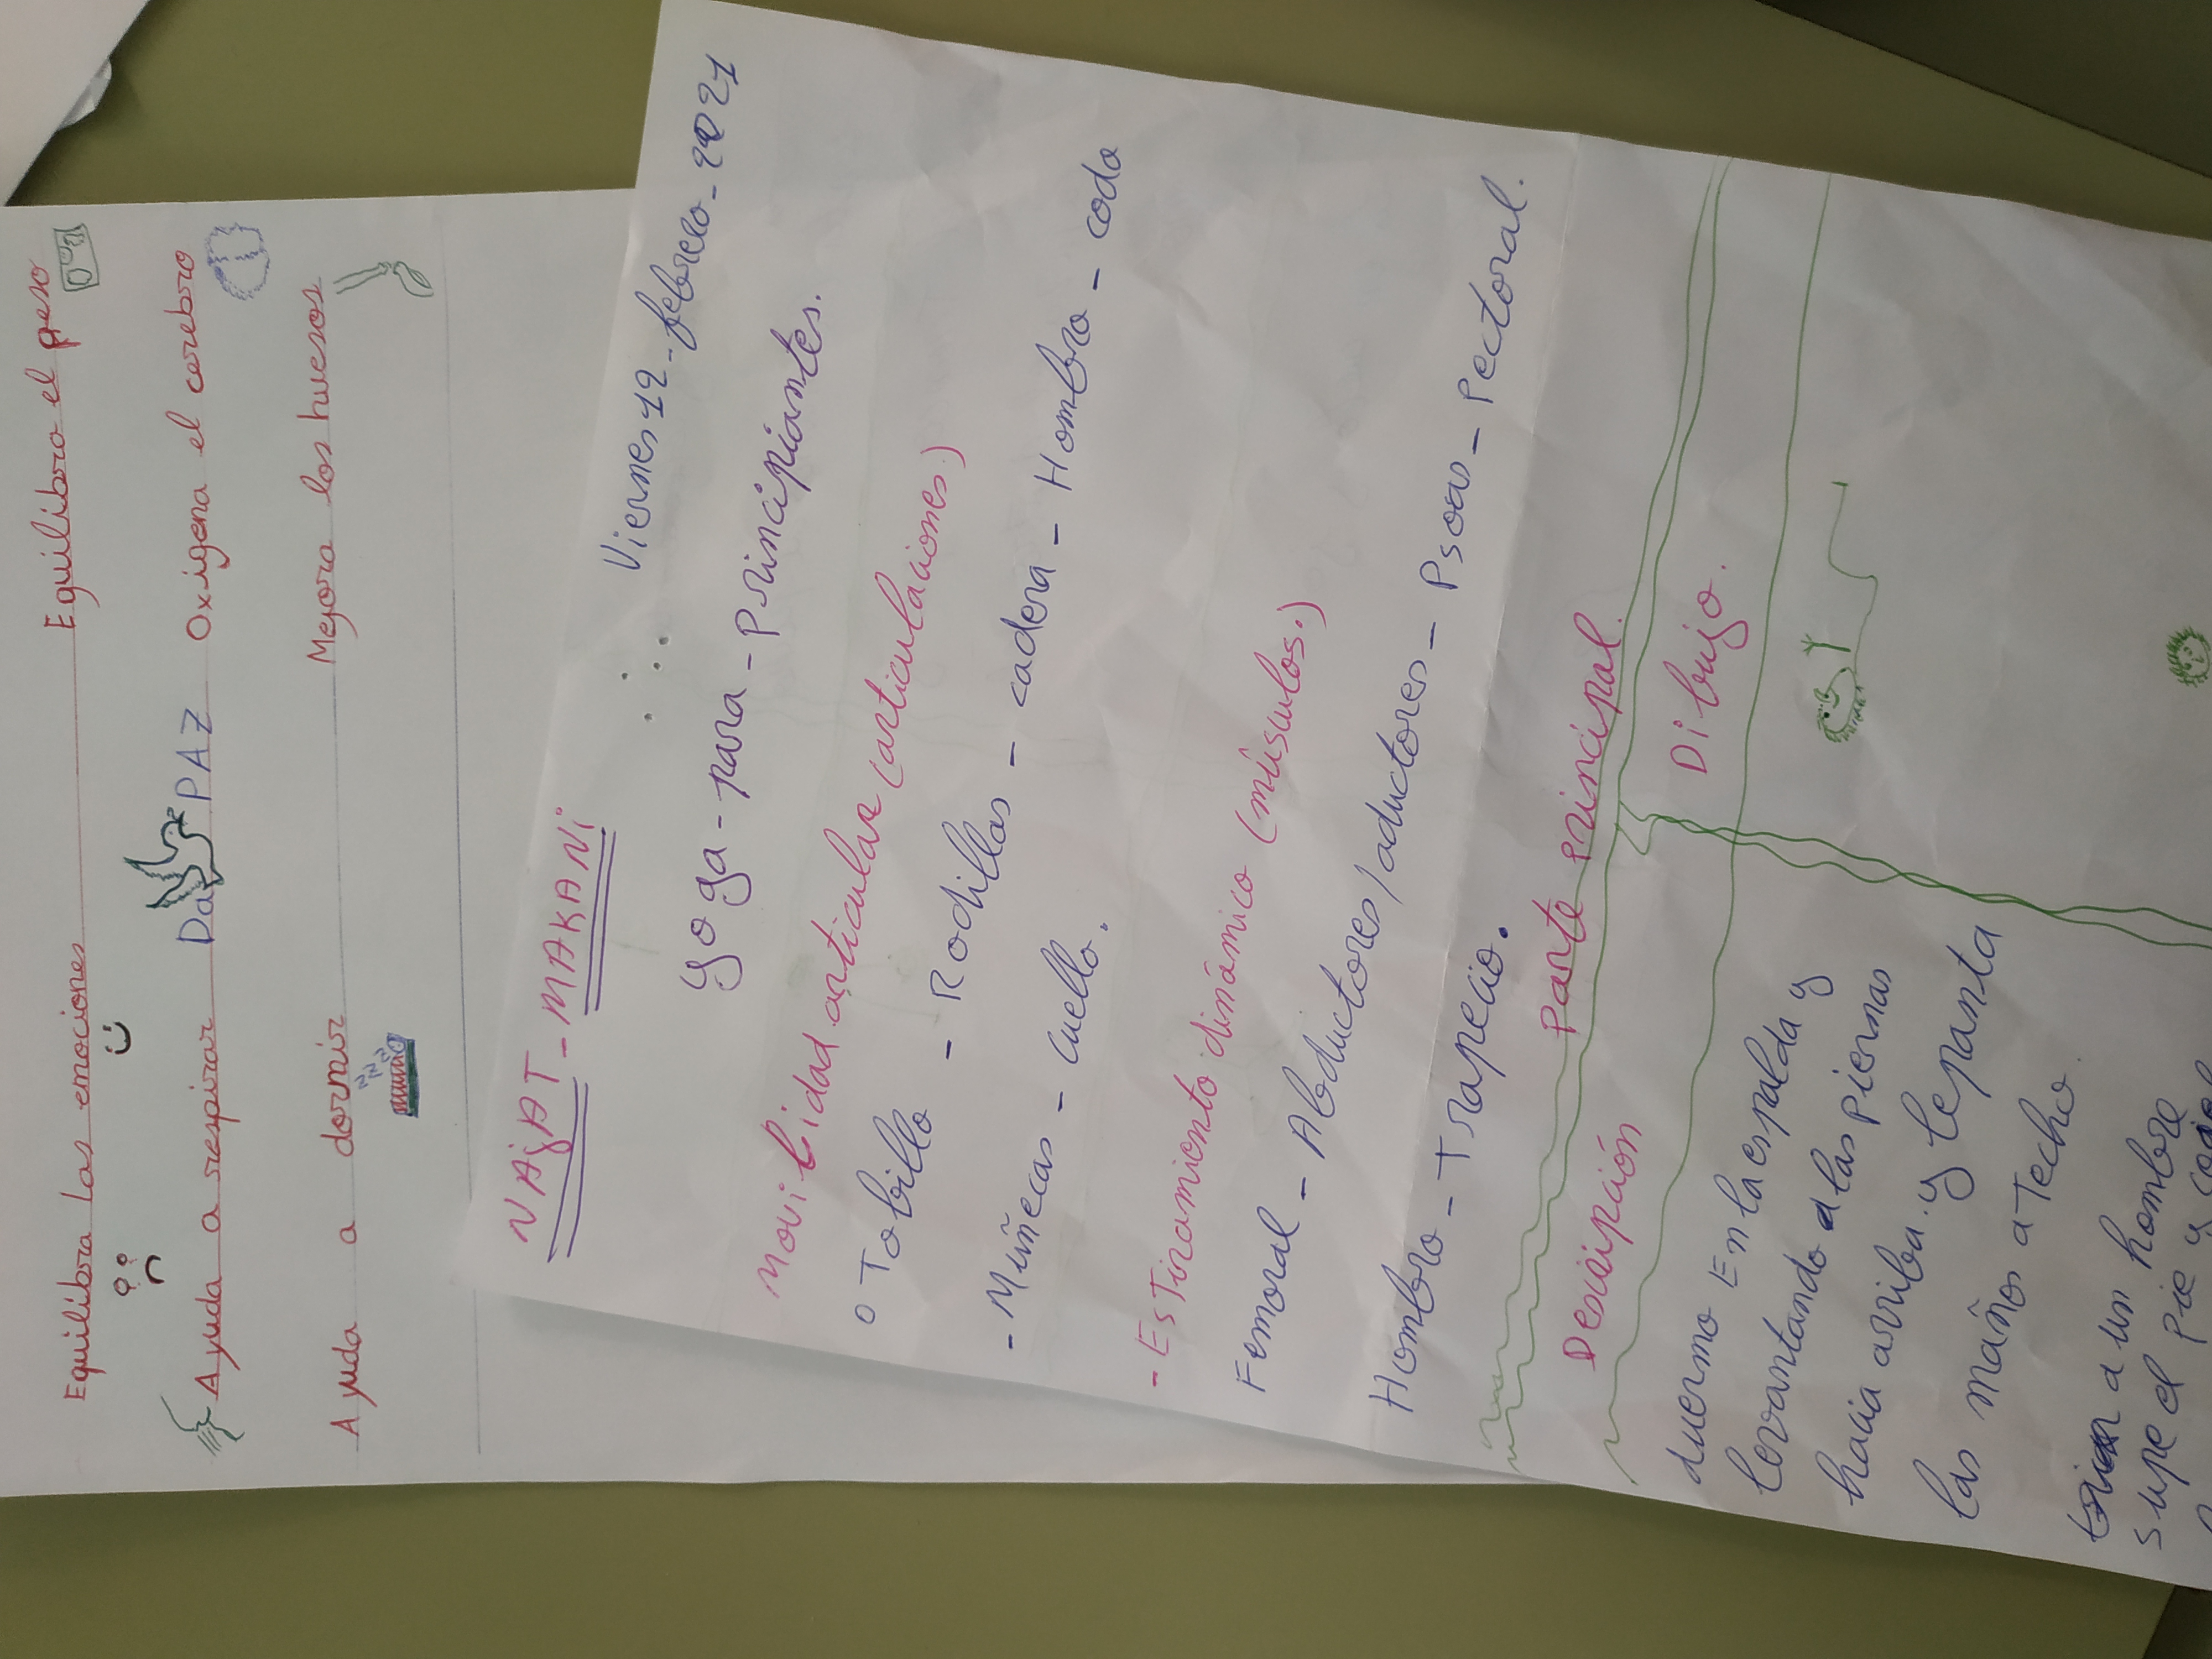 Equilibra las emociones
Equilibro el peso
Ayuda a respirar
Da PAZ
Oxigena el cerebro
Ayuda a dormir
Mejora los huesos
NAJAT - MAKANI
Viernes 12 - febrero - 2021
yoga - para - Principiantes.
Movilidad articular (articulaciones.)
o Tobillo - Rodillas - cadera - Hombro - codo
- Muñecas - cuello.
- Estiramiento dinámico (músculos.)
Femoral - Abductores/aductores - Psoas - Pectoral.
Hombro - Trapecio.
Parte principal.
Descripción
Dibujo.
duermo En la espalda y
levantando a las piernas
hacia arriba. y lepanta
las maños a Techo.
a un hombre
supe el pie y